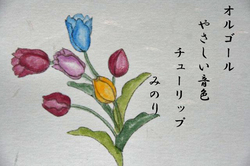 オルゴール
やさしい音色
チューリップ
みのり